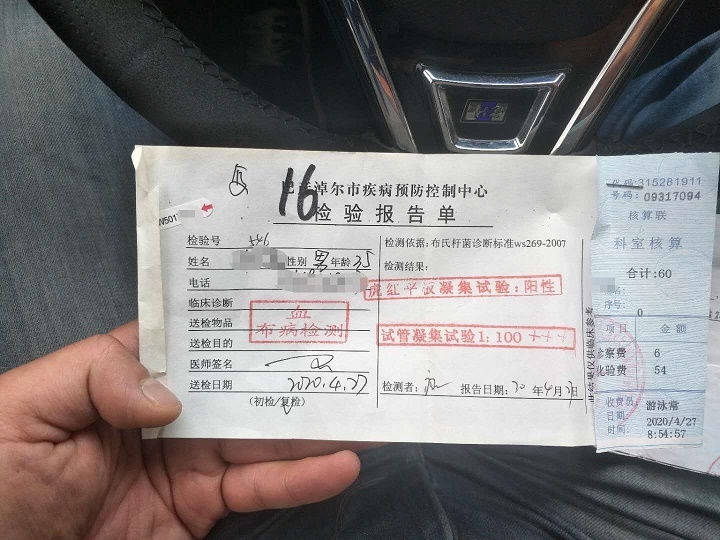 16
巴彦淖尔市疾病预防控制中心
检验报告单
检验号 546
姓名 性别 男 年龄 35
电话
临床诊断
送检物品
送检目的
医师签名
送检日期 2020.4.27
(初检/复检)
血
布病检测
检测依据:布氏杆菌诊断标准ws269-2007
检测结果:
虎红平板凝集试验:阳性
试管凝集试验1:100 +++
检测者: 报告日期:20 年4月 日
代码:315281911
号码:09317094
核算联
科室核算
合计:60
序号: 0
项目 金额
诊察费 6
化验费 54
收费员: 游泳常
日期: 2020/4/27
时间: 8:54:57